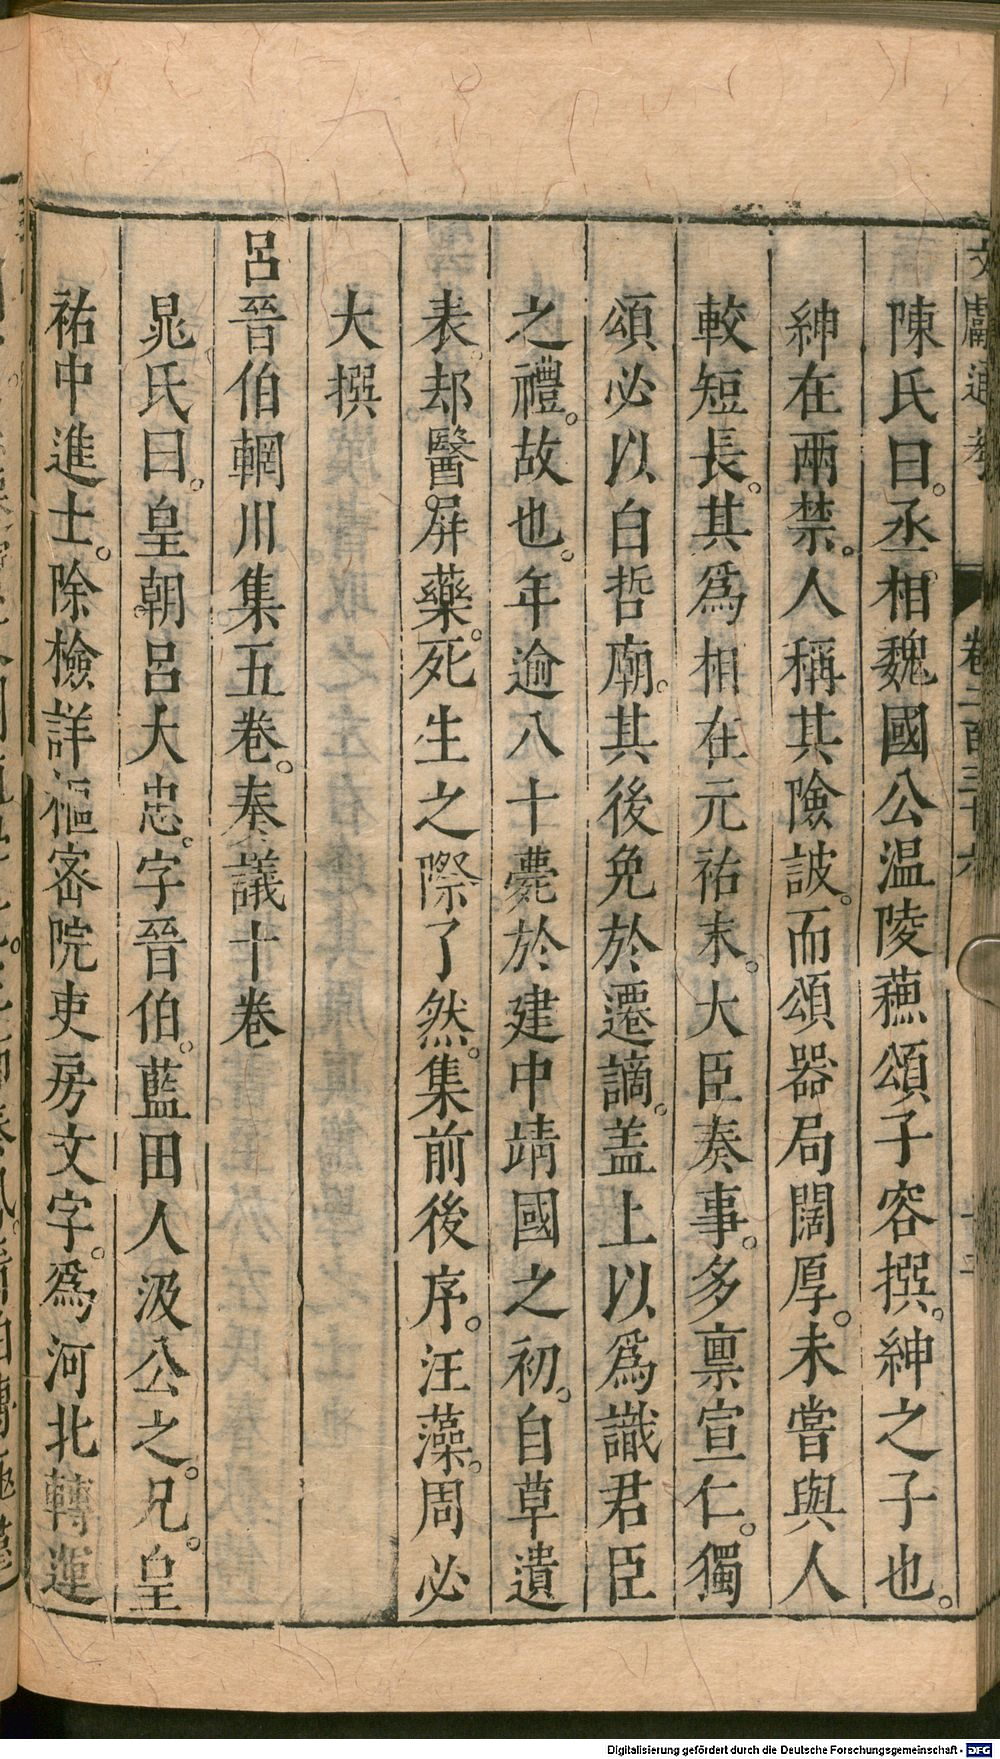 文獻通考 卷二百三十六 十二
陳氏曰。丞相魏國公温陵蘓頌子容撰。紳之子也。
紳在兩禁。人稱其險詖。而頌器局闊厚。未嘗與人
較短長。其爲相在元祐末。大臣奏事。多禀宣仁。獨
頌必以白哲廟。其後免於遷謫。盖上以爲識君臣
之禮。故也。年逾八十薨於建中靖國之初。自草遺
表。却醫屏藥。死生之際了然。集前後序。汪藻。周必
大撰
呂晉伯輞川集五卷。奏議十卷
晁氏曰。皇朝呂大忠。字晉伯。藍田人汲公之。兄。皇
祐中進士。除檢詳樞密院吏房文字。爲河北轉運
Digitalisierung gefördert durch die Deutsche Forschungsgemeinschaft - DFG